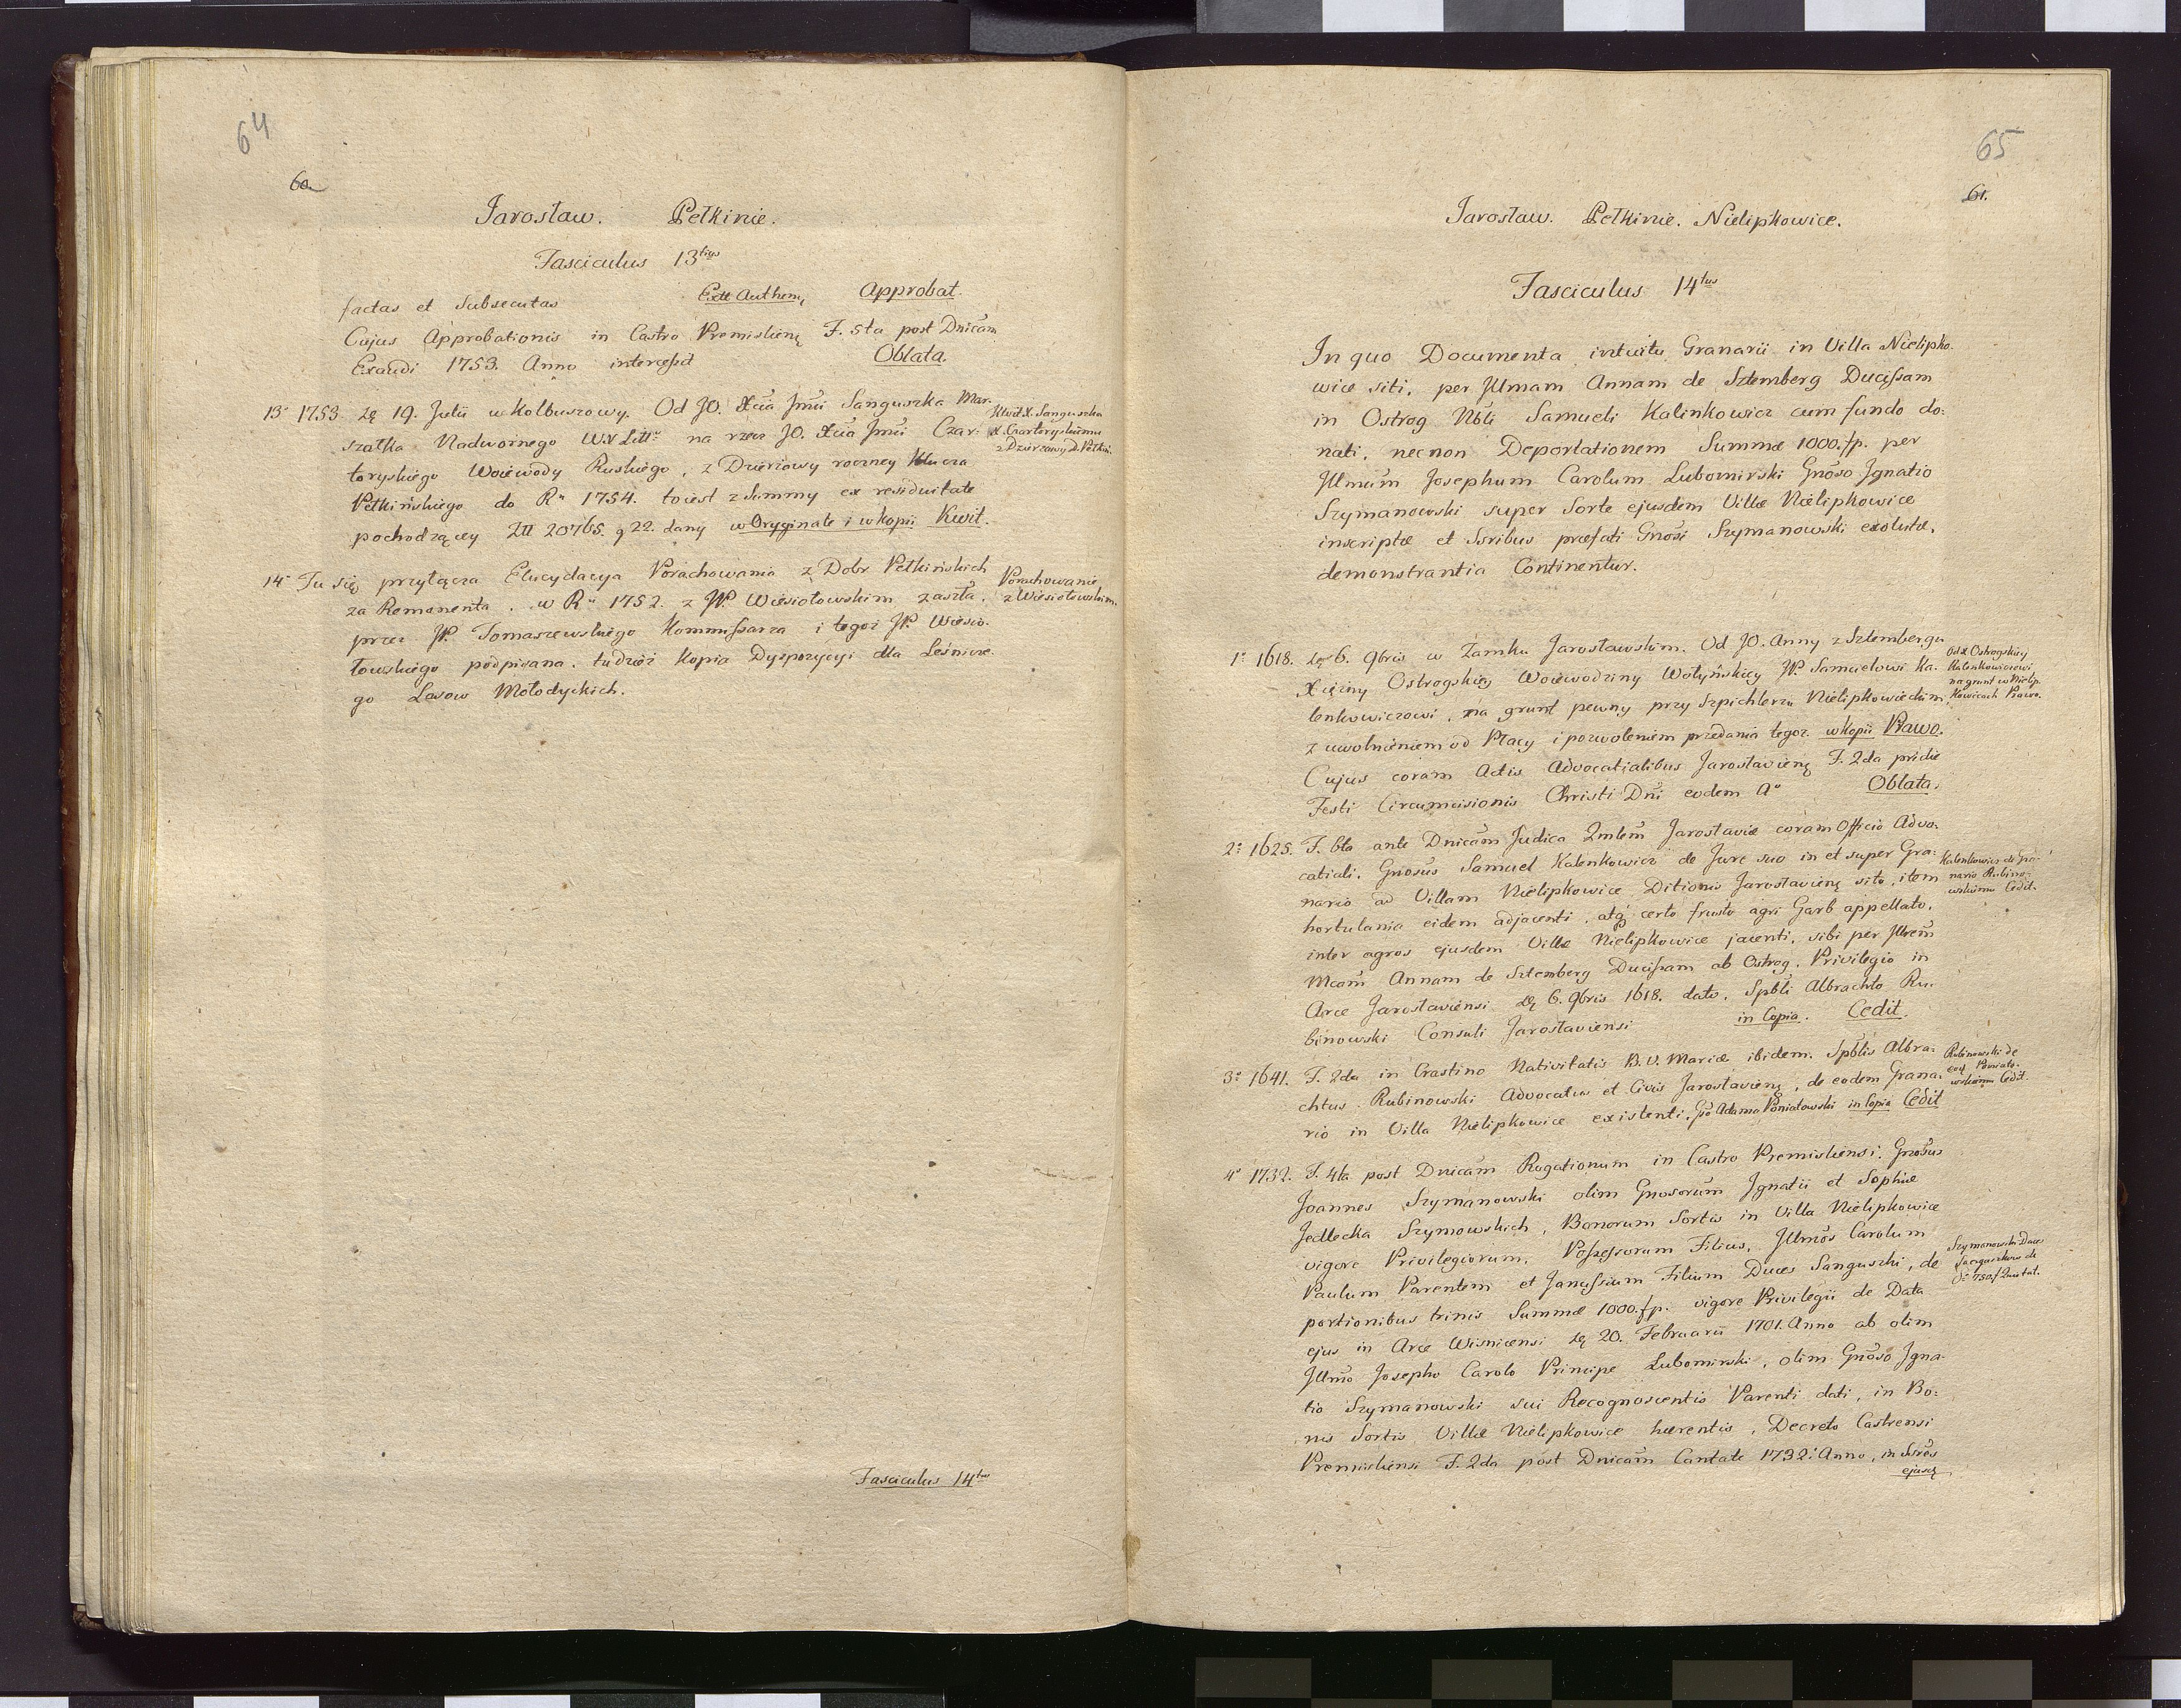 64
60
Jarosław. Pełkinie.
Fasciculus 13tius
factas et Subsecutas Extt Authen, Approbat.
Cujus Approbationis in Castro Premislien, F. 5ta post Dnicam
Exaudi 1753. Anno intercessit Oblata.
13° 1753. Dę 19. Julii w Kolbuszowy. Od JO. Xcia Jmci Sanguszka Mar-
szałka Nadwornego W.X Litt° na rzecz JO. Xcia Jmci Czar-
toryskiego Woiewody Ruskiego, z Dzierżawy roczney Klucza
Pełkińskiego do R° 1754. toiest z Summy ex residuitate
pochodzącey Złł 20765. g 22. dany w Oryginale i w kopii Kwit.
Kwit X. Sanguszka
X. Czartoryskiemu
z Dzierżawy D. Pełkiń.
14° Tu się przyłącza Elucydacya Porachowania z Dobr Pełkińskich
za Remanenta. w R° 1752. z JP. Wiesiołowskim zaszła,
przez JP. Tomaszewskiego Kommissarza i tegoż JP. Wiesio-
łowskiego podpisana. tudzież Kopia Dyspozycyi dla Leśnicze-
go Lasow Mołodyckich.
Porachowanie
z Wiesiołowskim.
Fasciculus 14tus
65
61.
Jarosław. Pełkinie. Nielipkowice.
Fasciculus 14tus
In quo Documenta intuitu Granarii in Villa Nielipko-
wice siti, per Illmam Annam de Sztemberg Ducissam
in Ostrog Nbli Samueli Kalinkowicz cum fundo do-
nati, necnon Deportationem Summæ 1000. fp. per
Illmum Josephum Carolum Lubomirski Gnoso Ignatio
Szymanowski super Sorte ejusdem Villæ Nielipkowice
inscriptæ et Ssribus præfati Gnosi Szymanowski exolutæ,
demonstrantia Continentur.
1° 1618. Dę 6. 9bris w Zamku Jarosławskim. Od JO. Anny z Sztembergu
Xiężny Ostrogskiey Woiewodziny Wołyńskiey JP. Samuelowi Ka-
lenkowiczowi, na grunt pewny przy Szpichlerzu Nielipkowieckim,
z uwolnieniem od Płacy i pozwoleniem przedania tegoż. w kopii Prawo.
Cujus coram Actis Advocatialibus Jaroslavien, F. 2da pridie
Festi Circumcisionis Christi Dni eodem A° Oblata.
Od X Ostrogskiey
Kalenkowiczowi
na grunt w Nielip-
kowicach Prawo.
2° 1625. F. 6ta ante Dnicam Judica Qmlem Jaroslaviæ coram Officio Advo-
catiali. Gnosus Samuel Kalenkowicz de Jure suo in et super Gra-
nario ad Villam Nielipkowice Ditionis Jaroslavien, sito, item
hortulania eidem adjacenti, atq certo frusto agri Garb appellato,
inter agros ejusdem Villæ Nielipkowice jacenti, sibi per Illrem
Mcam Annam de Sztemberg Ducissam ab Ostrog, Privilegio in
Arce Jaroslaviensi Dę 6. 9bris 1618. dato, Spbli Albrachto Ru-
binowski Consuli Jaroslaviensi in Copia. Cedit.
Kalenkowicz de Gra-
nario Rubino-
wskiemu Cedit.
3° 1641. F. 2da in Crastino Nativitatis B. V. Mariæ ibidem. Spblis Albra-
chtus Rubinowski Advocatus et Civis Jaroslavien, de eodem Grana-
rio in Villa Nielipkowice existenti, Gso Adamo Poniatowski in Copia Cedit
Rubinowski de
eod Poniato-
wskiemu Cedit.
4° 1732. F. 4ta post Dnicam Rogationum in Castro Premisliensi. Gnosus
Joannes Szymanowski olim Gnosorum Ignatii et Sophiæ
Jedlecka Szymowskich, Bonorum Sortis in Villa Nielipkowice
vigore Privilegiorum, Possessorum Filius, Illmos Carolum
Paulum Parentem et Janussium Filium Duces Sanguszki, de
portionibus trinis Summæ 1000. fp. vigore Privilegii de Data
ejus in Arce Wisnicensi Dę 20. Februarii 1701. Anno ab olim
Illmo Josepho Carolo Principe Lubomirski, olim Gnoso Igna-
tio Szymanowski sui Recognoscentis Parenti dati, in Bo-
nis Sortis Villæ Nielipkowice hærentis, Decreto Castrensi
Premisliensi F. 2da post Dnicam Cantate 1732. Anno, in Ssros
ejusd,
Szymanowski Duces
Sanguszkow de
750. f Quietat.